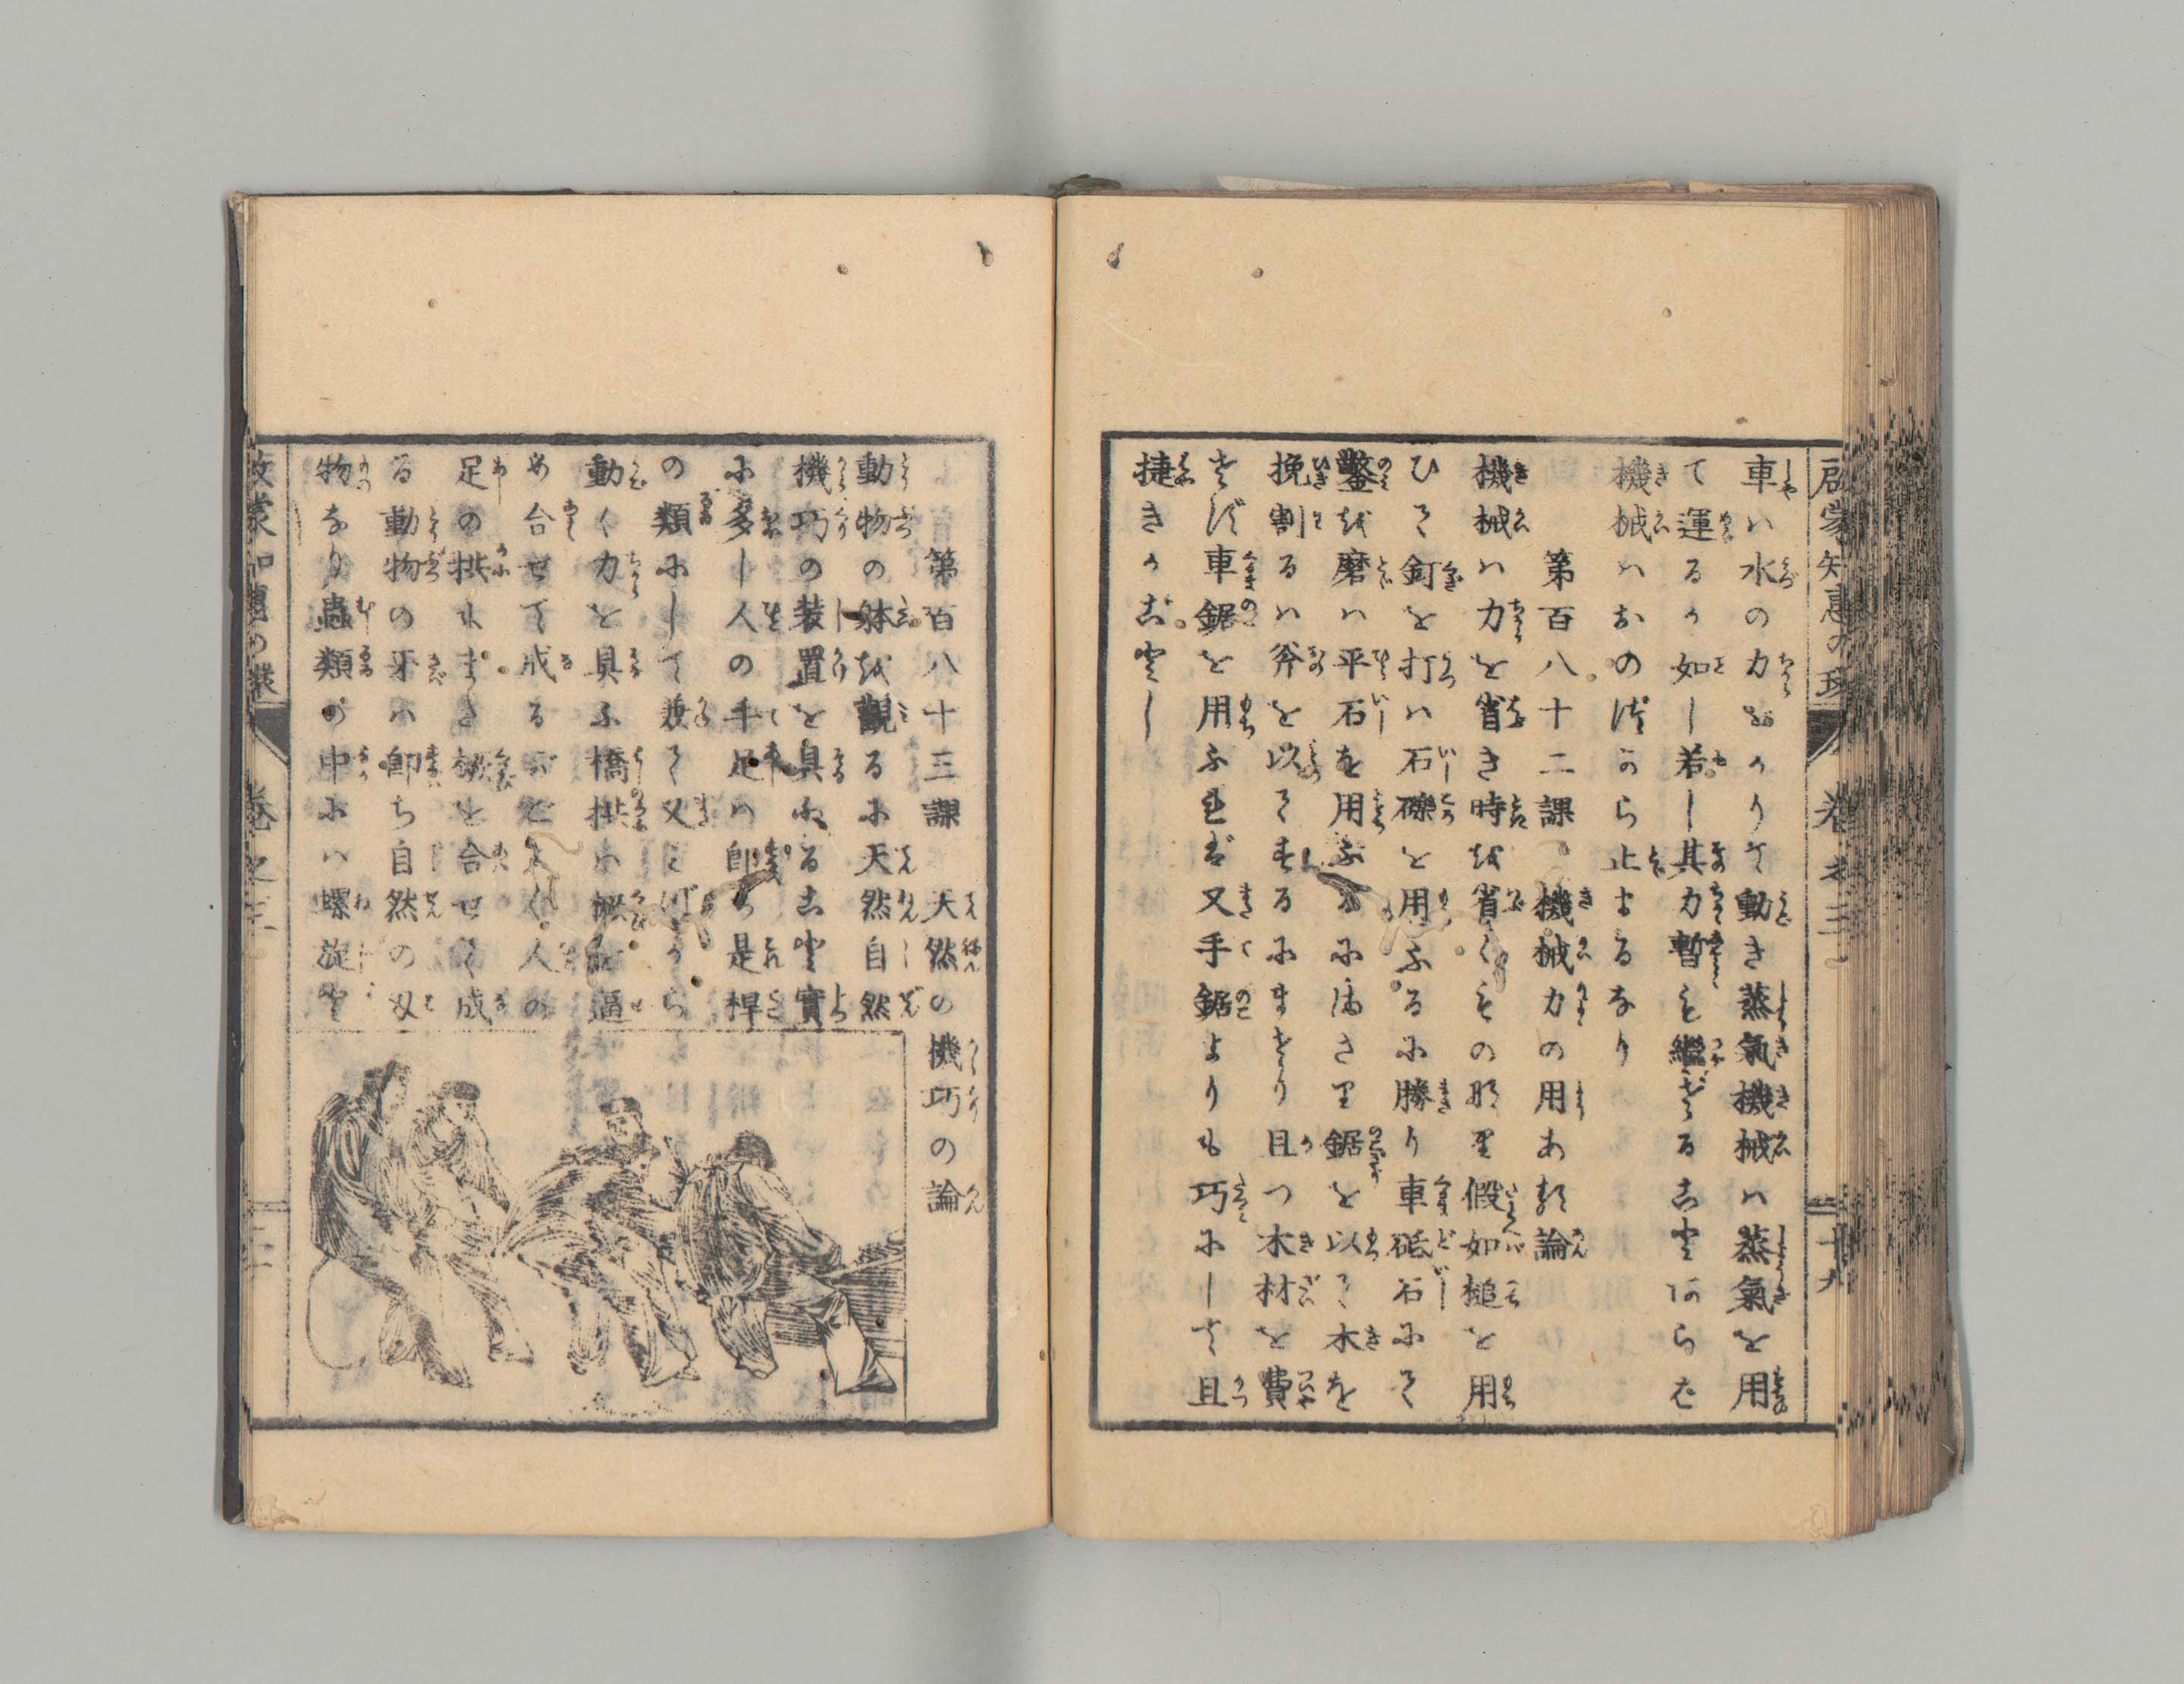 啓蒙知惠の環 卷之三 十九
車ハ水の力によりて動き蒸氣機械ハ蒸氣を用
て運るが如し若し其力暫も繼ざること𛀁らば
機械ハおのづから止まるなり
第百八十二課 機械力の用ある論
機械ハ力を省き時を省くもの那里假如槌を用
ひて釘を打ハ石礫を用ふるに勝り車砥石にて
鑿を磨ハ平石を用ふるに
鋸を以て木を
挽割るハ斧を以てするにまさり且つ木材を費
さず車鋸を用ふれば又手鋸よりも巧にして且
捷きがごとし
第百八十三課 天然の機巧の論
動物の躰を觀るに天然自然
機巧の装置を具ふること實
に多し人の手足ハ即ち是桿
の類にして
動く力を具ふ橋拱ハ
め合せて成る
人の
足の拱もまた
を合せて成
る動物の牙ハ即ち自然の刄
物なり蟲類の中にハ螺旋と
卷之三 二十